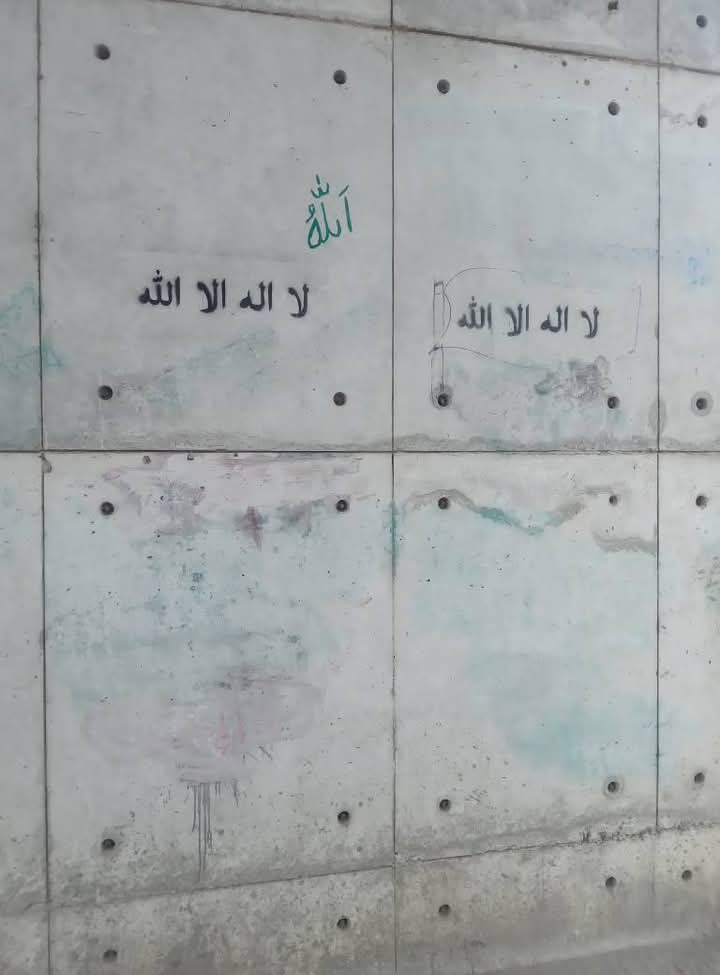 اَللّٰهُ
لا اله الا الله
لا اله الا الله